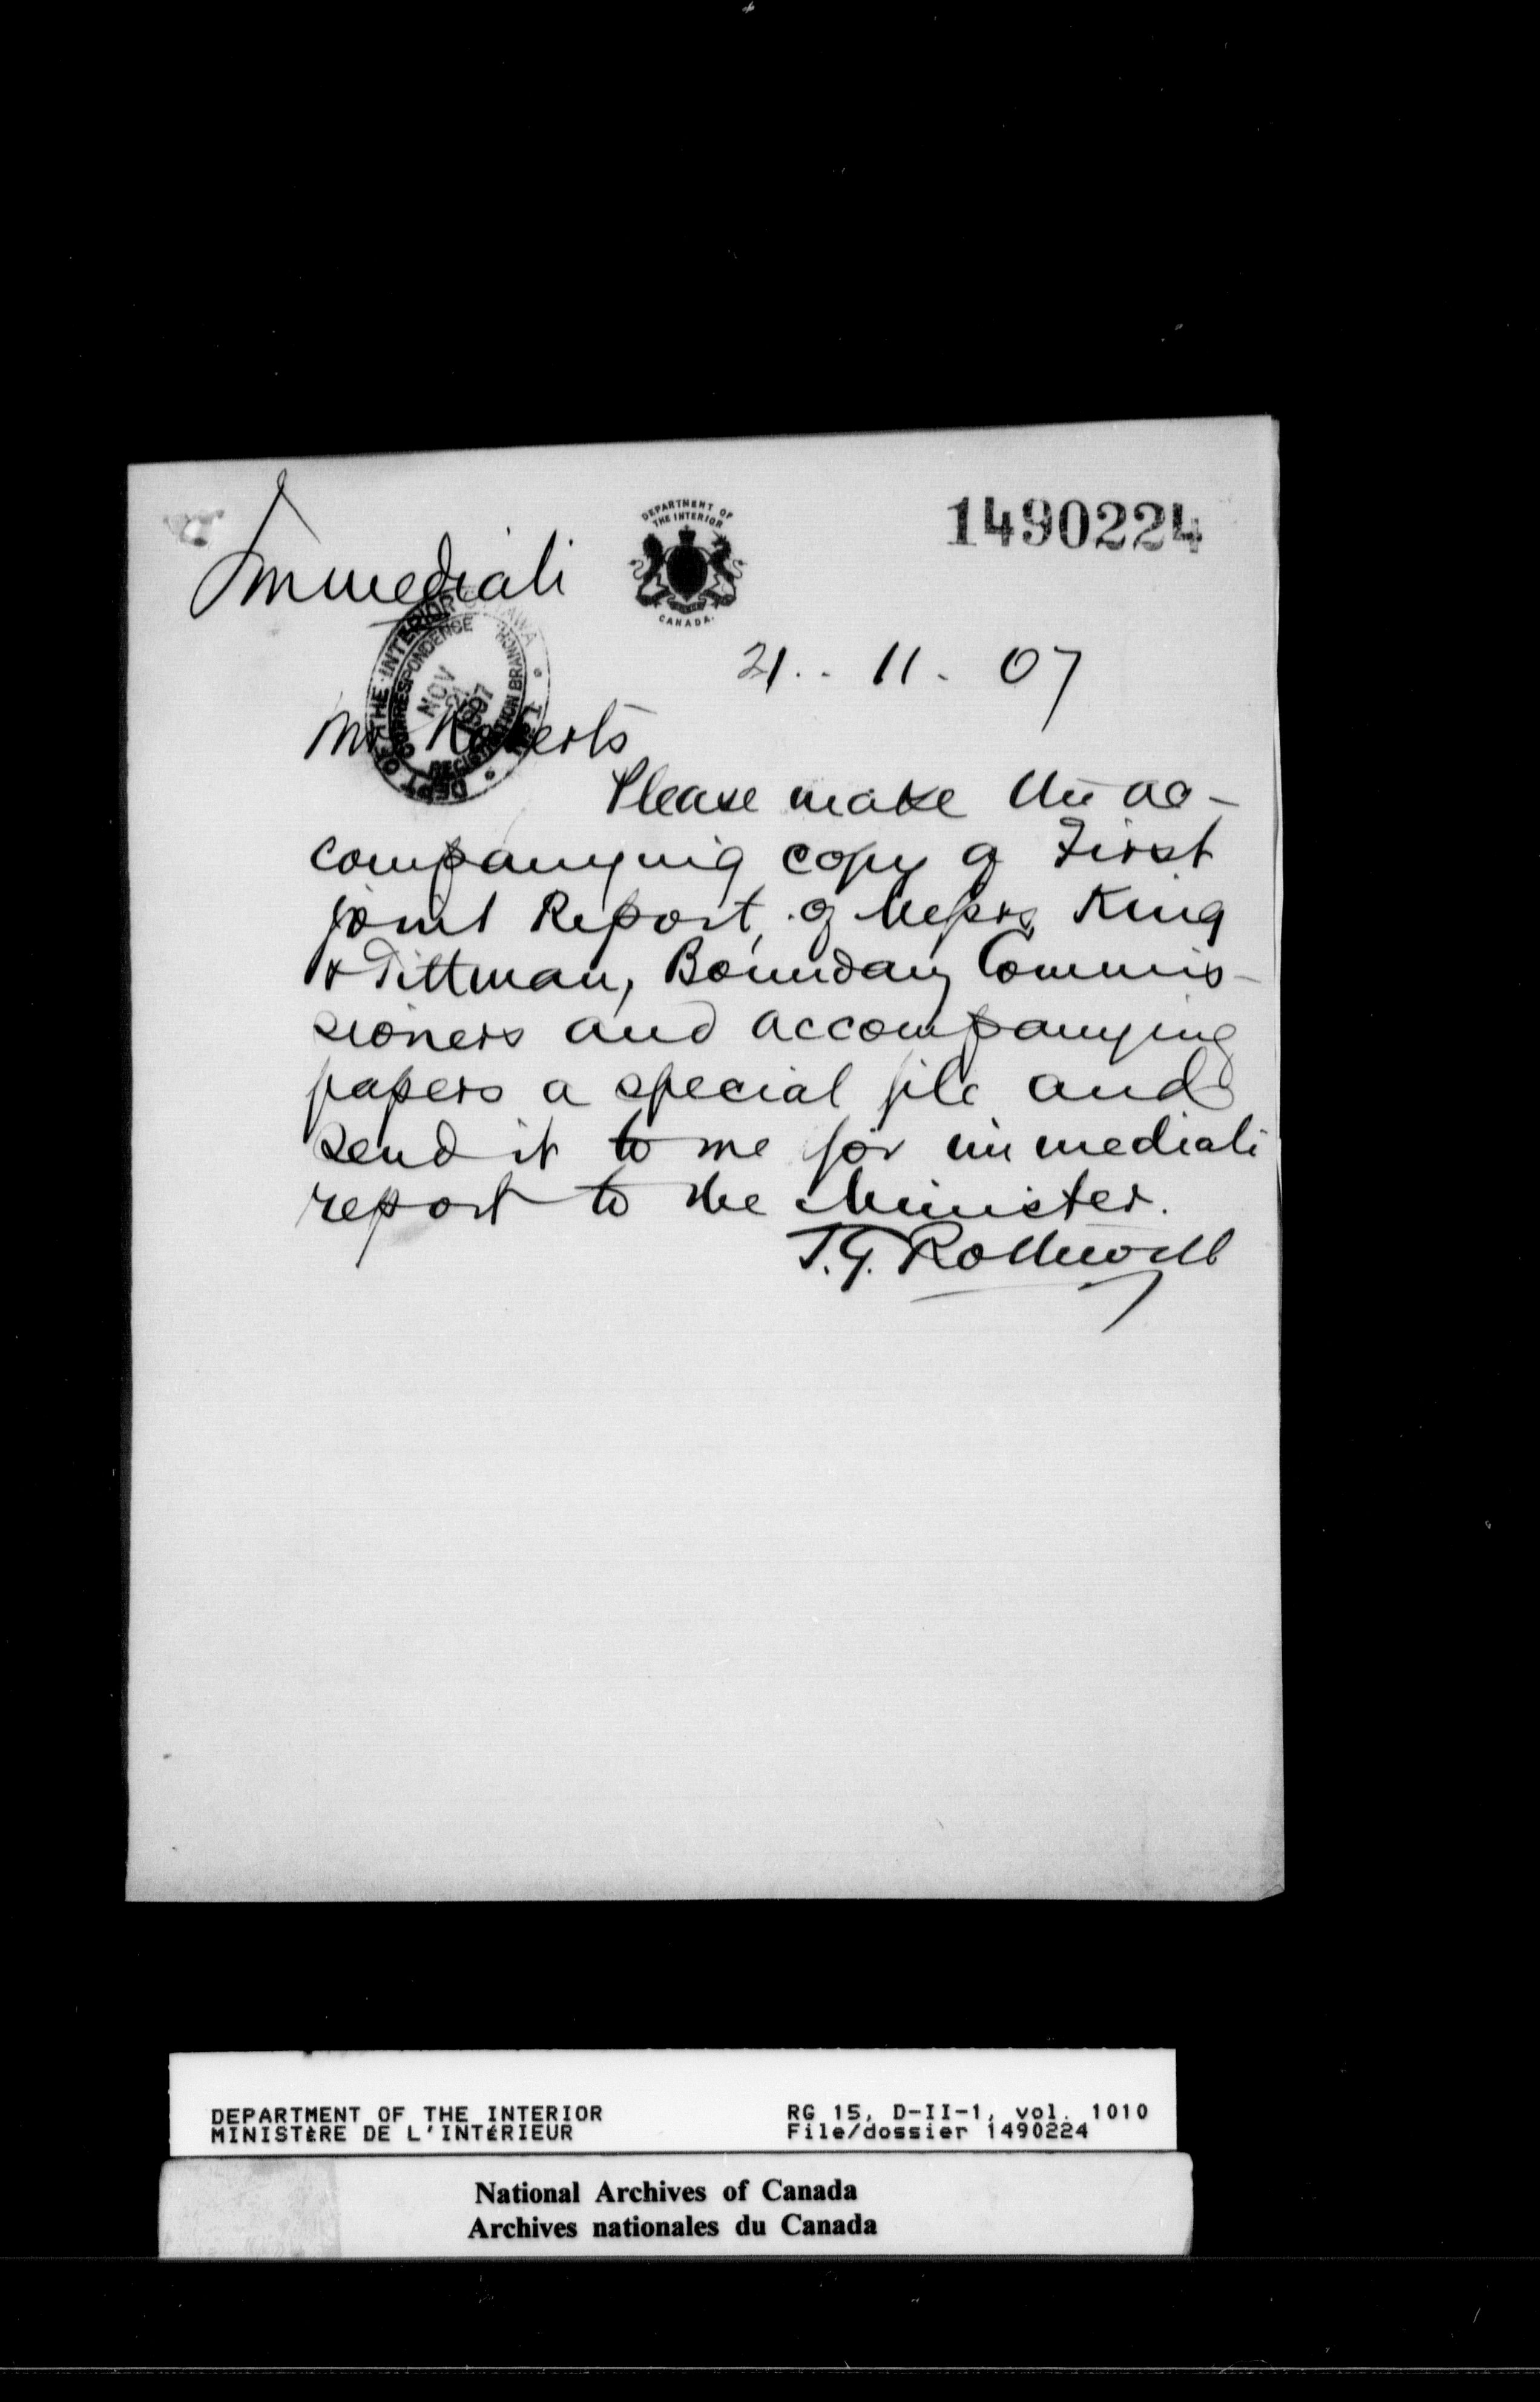 Immediate
DEPARTMENT OF
THE INTERIOR
CANADA.
1490224
DEPT OF THE INTERIOR OTTAWA
CORRESPONDENCE REGISTRATION BRANCH
NOV
21
1907
21.. 11. 07
Mr Roberts
Please make the ac-
companying copy of First
joint Report, of Messrs King
& Tittman, Boundary Commis-
sioners and accompanying
papers a special file and
send it to me for immediate
report to the Minister.
T.G. Rothwell
DEPARTMENT OF THE INTERIOR
MINISTÈRE DE L'INTÉRIEUR
RG 15, D-II-1, vol. 1010
File/dossier 1490224
National Archives of Canada
Archives nationales du Canada